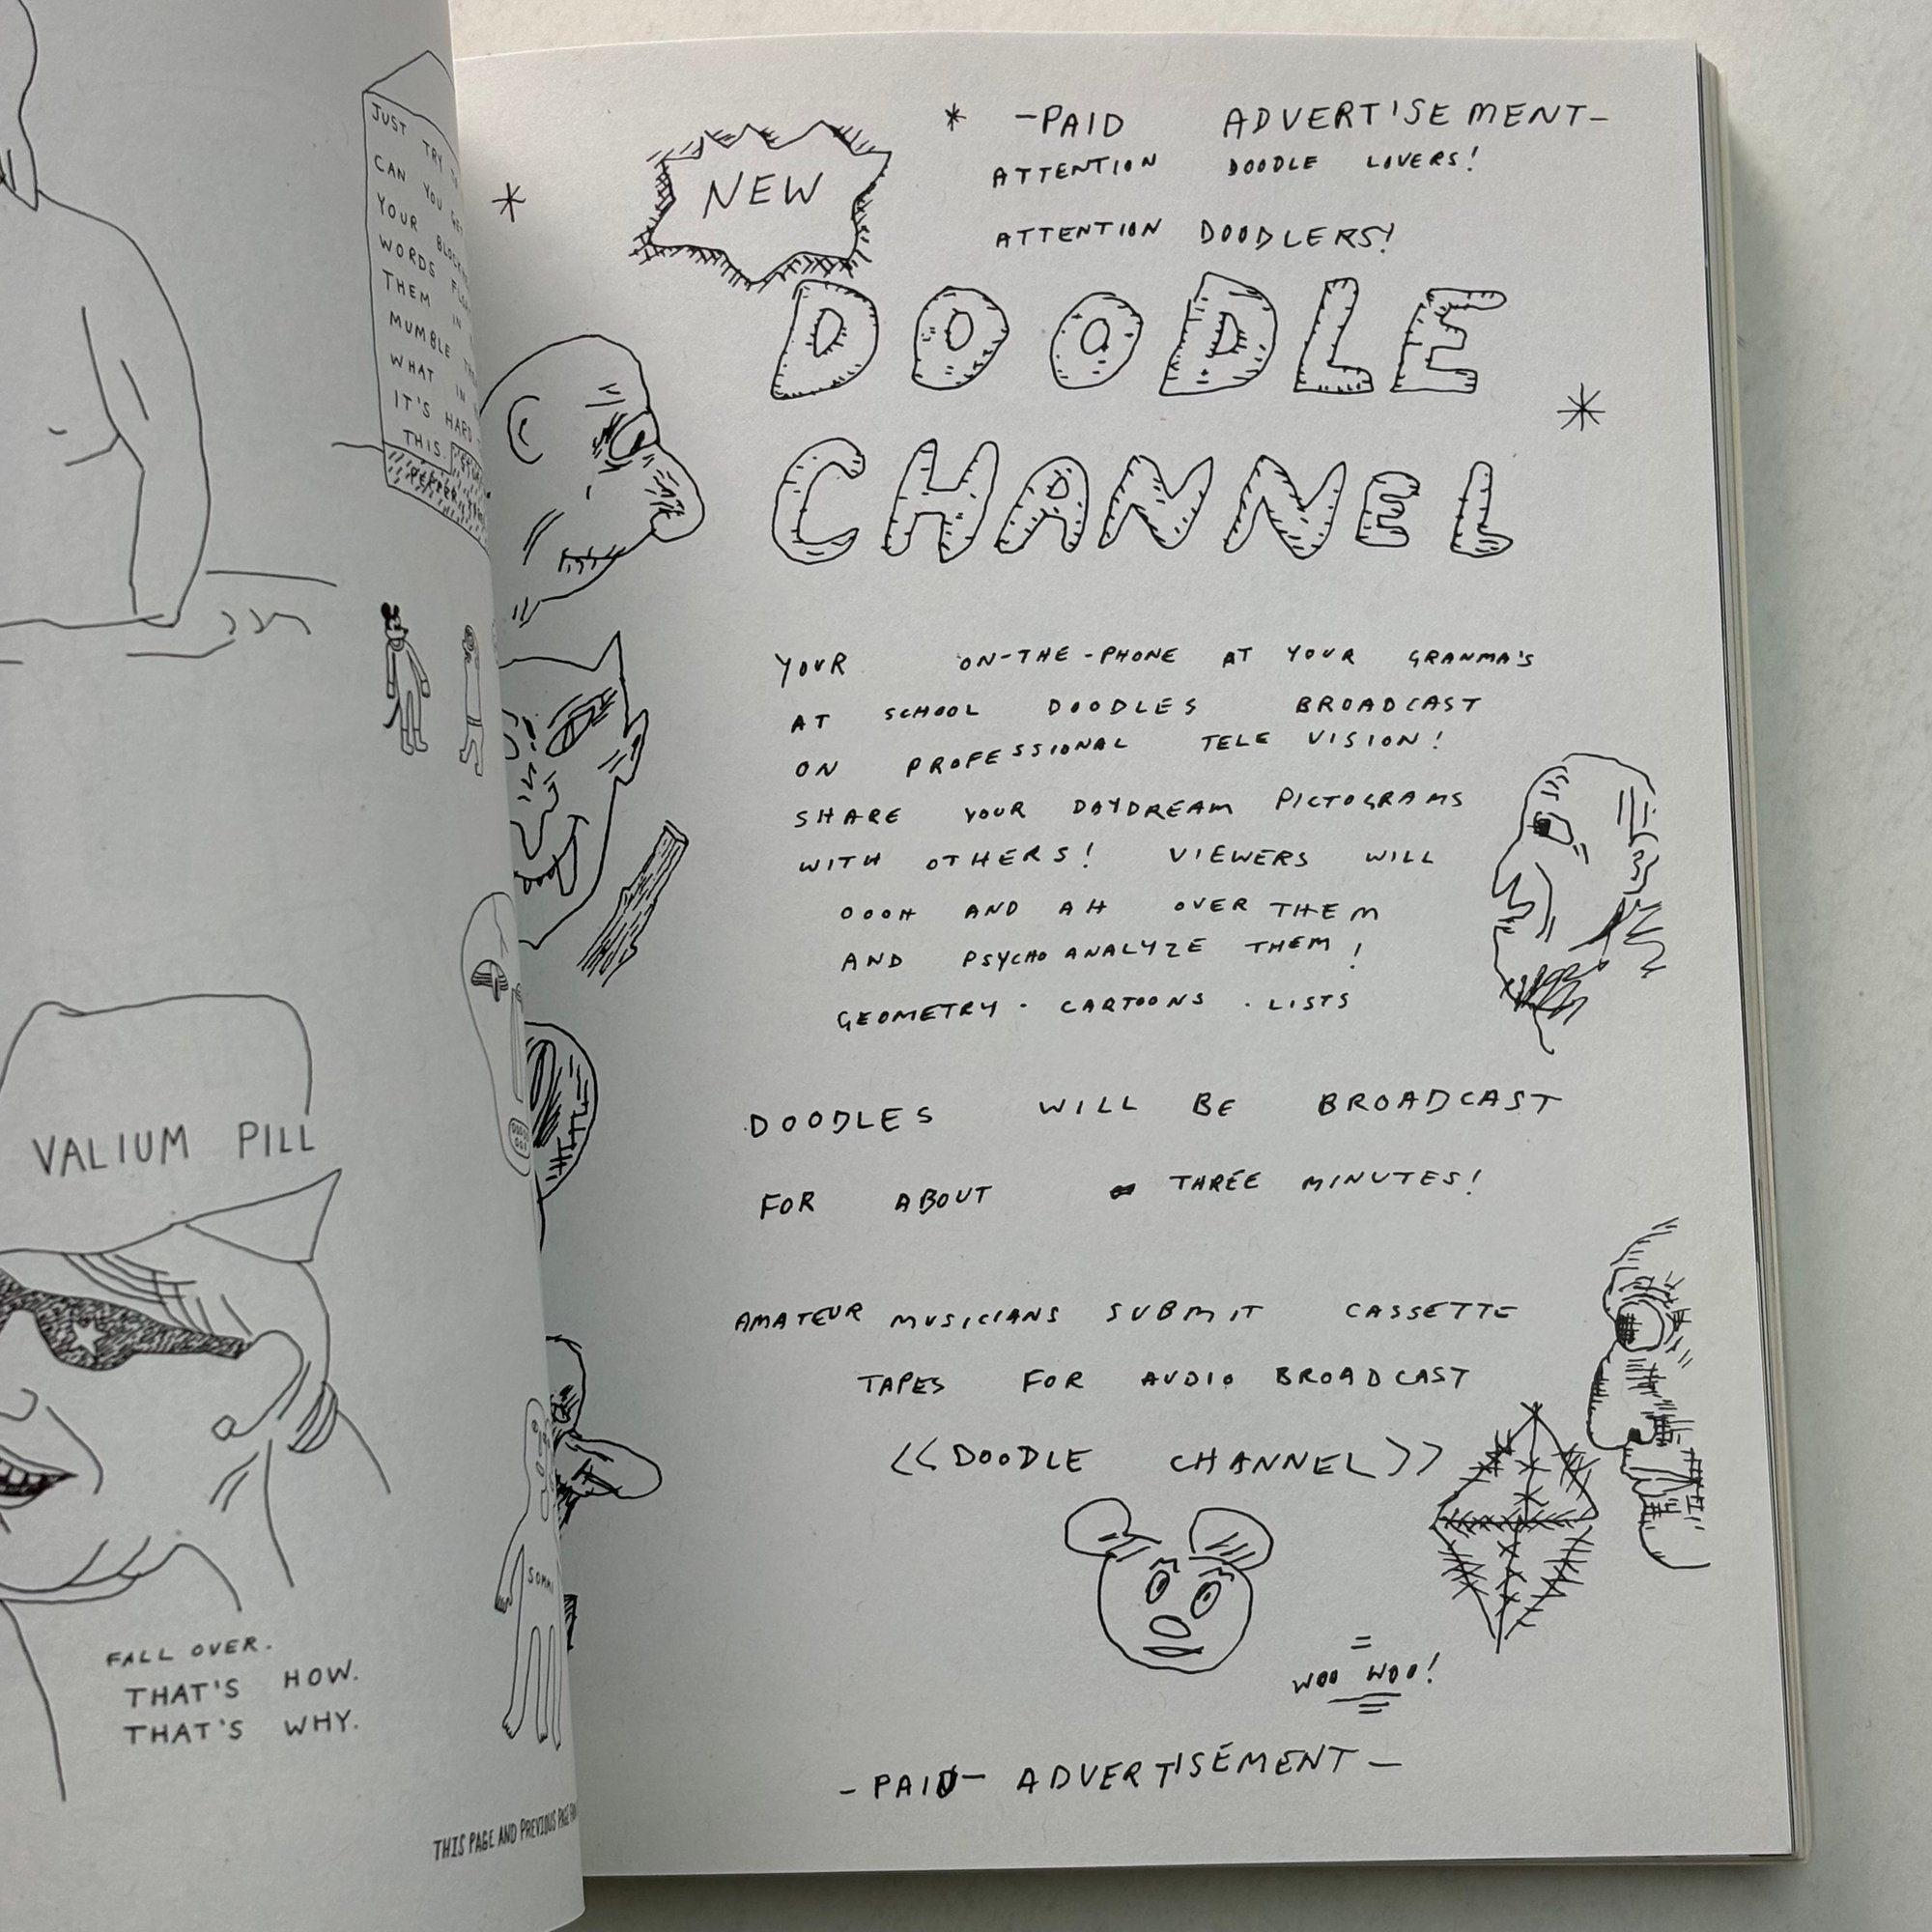 JUST TRY
CAN YOU GET
YOUR
WORDS
THEM IN
MUMBLE
WHAT IN
IT'S HARD
THIS.
VALIUM PILL
FALL OVER.
THAT'S HOW.
THAT'S WHY.
THIS PAGE AND PREVIOUS PAGE
NEW
* -PAID ADVERTISEMENT-
ATTENTION DOODLE LOVERS!
ATTENTION DOODLERS!
DOODLE
CHANNEL
YOUR ON-THE-PHONE AT YOUR GRANMA'S
AT SCHOOL DOODLES BROADCAST
ON PROFESSIONAL TELE VISION!
SHARE YOUR DAYDREAM PICTOGRAMS
WITH OTHERS! VIEWERS WILL
OOOH AND AH OVER THEM
AND PSYCHO ANALYZE THEM!
GEOMETRY · CARTOONS · LISTS
DOODLES WILL BE BROADCAST
FOR ABOUT THREE MINUTES!
AMATEUR MUSICIANS SUBMIT CASSETTE
TAPES FOR AUDIO BROADCAST
<<DOODLE CHANNEL>>
WOO WOO!
-PAID- ADVERTISEMENT-